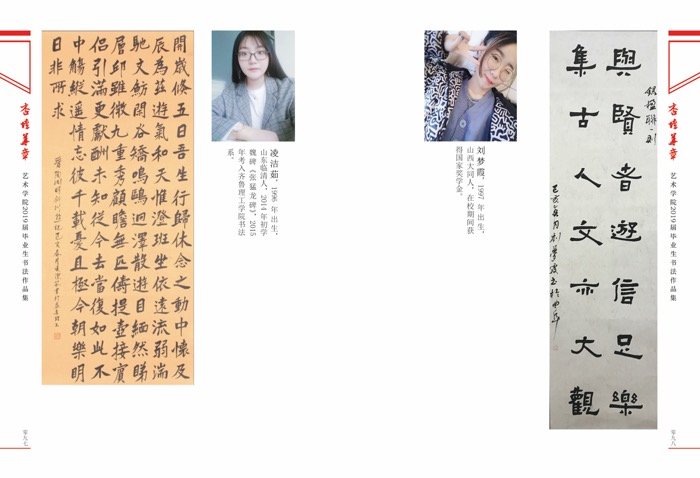 艺术学院2019届毕业生书法作品集
零九七
開歲倏五日吾生行歸休念之動中懷及
辰為茲遊氣和天惟澄班坐依遠流弱湍
馳文魴閑谷矯鳴鷗迥澤散遊目緬然睇
層邱雖微九重秀顧瞻無匹儔提壺接賓
侶引滿更獻酬未知從今去當復如此不
中觴縱遙情忘彼千載憂且極今朝樂明
日非所求
凌洁茹，1996 年出生，
山东临清人，2014年初学
魏碑《张猛龙碑》，2015
年考入齐鲁理工学院书法
系。
刘梦霞，1997 年出生，
山西大同人，在校期间获
得国家奖学金。
與賢者遊信足樂
集古人文亦大觀
艺术学院2019届毕业生书法作品集
零九八